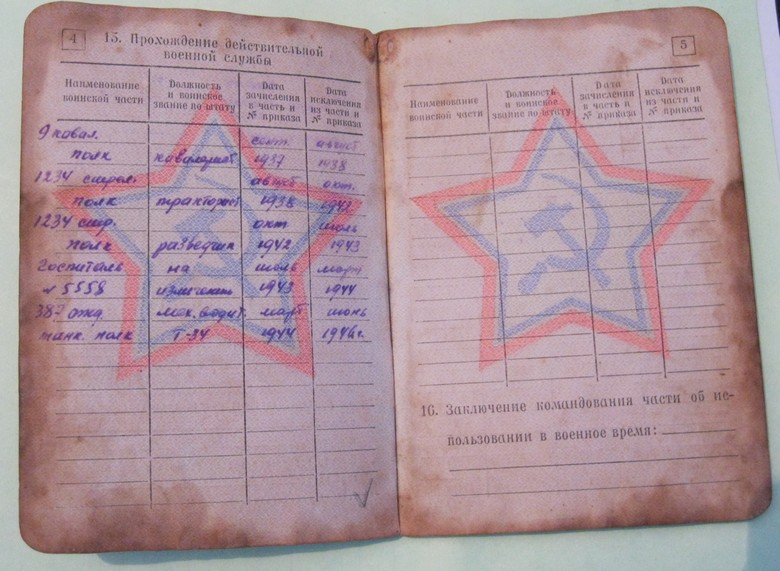 4
15. Прохождение действительной
военной службы
Наименование воинской части
Должность и воинское звание по штату
Дата зачисления в часть и № приказа
Дата исключения из части и № приказа
9 кавал. сент. август
полк кавалерист 1937 1938
1234 август окт.
полк тракторист 1938 1942
1234 стр. окт июль
полк разведчик 1942 1943
Госпиталь на июль март
№ 5558 излечении 1943 1944
387 отд. мех. водит. март июнь
танк. полк Т-34 1944 1946г.
5
Наименование воинской части
Должность и воинское звание по штату
Дата зачисления в часть и № приказа
Дата исключения из части и № приказа
16. Заключение командования части об ис-
пользовании в военное время: